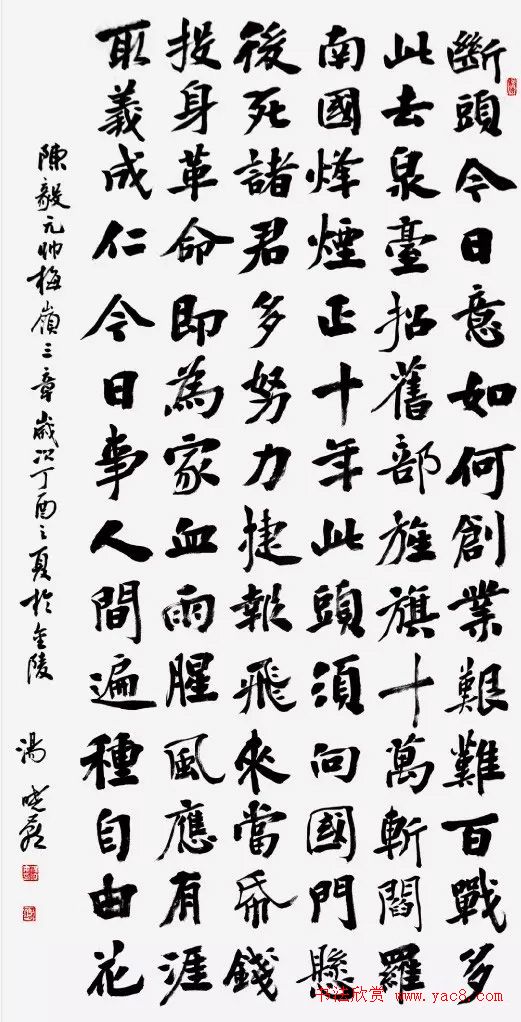 斷頭今日意如何創業艱難百戰多
此去泉臺招舊部旌旗十萬斬閻羅
南國烽煙正十年此頭須向國門懸
後死諸君多努力捷報飛來當帋錢
投身革命即為家血雨腥風應有涯
取義成仁今日事人間遍種自由花
陳毅元帥梅嶺三章歲次丁酉之夏於金陵
湯曉
书法欣赏 www.yac8.com